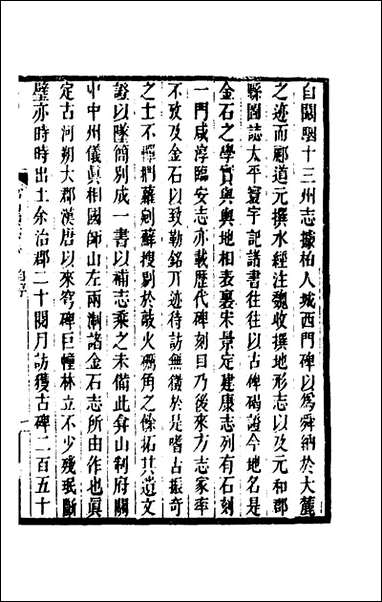 自闞駰十三州志據柏人城西門碑以爲舜納於大麓
之迹而酈道元撰水經注魏收撰地形志以及元和郡
縣圖誌太平寰宇記諸書往往以古碑碣證今地名是
金石之學實與輿地相表裏宋景定建康志列有石刻
一門咸淳臨安志亦載歷代碑刻目乃後來方志家率
不攷及金石以致勒銘刓迹待訪無徵於是嗜古振奇
之士不憚捫蘿剜蘇搜剔於敲火礪角之餘拓其遺文
證以墜簡別成一書以補志乘之未備此弇山制府關
中中州儀眞相國師山左兩淛諸金石志所由作也眞
定古河朔大郡漢唐以來穹碑巨幢林立不少殘珉斷
壁亦時時出土余治郡二十閱月訪獲古碑二百五十